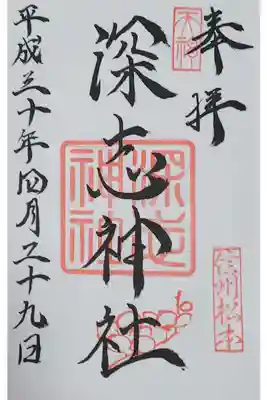 奉拝
天神
信州松本
深志神社
深志神社
平成三十年四月二十九日